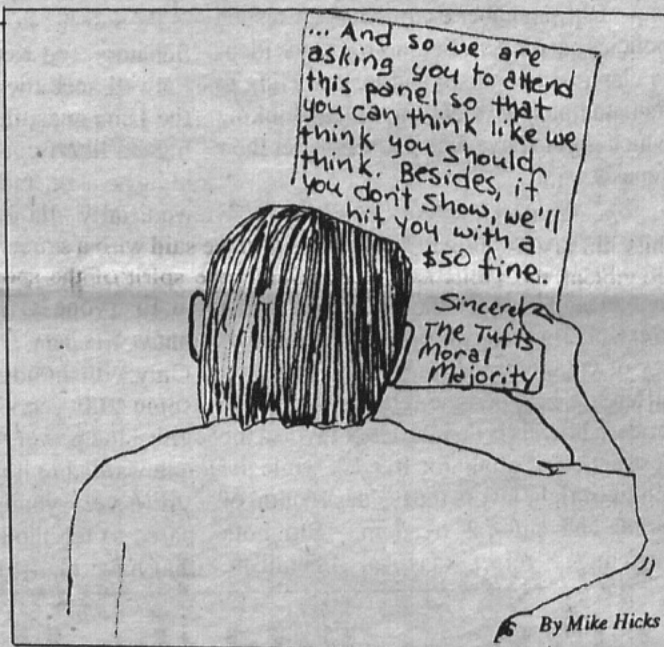 ... And so we are
asking you to attend
this panel so that
you can think like we
think you should
think. Besides, if
you don't show, we'll
hit you with a
$50 fine.
Sincerel
The Tufts
Moral
Majority
By Mike Hicks